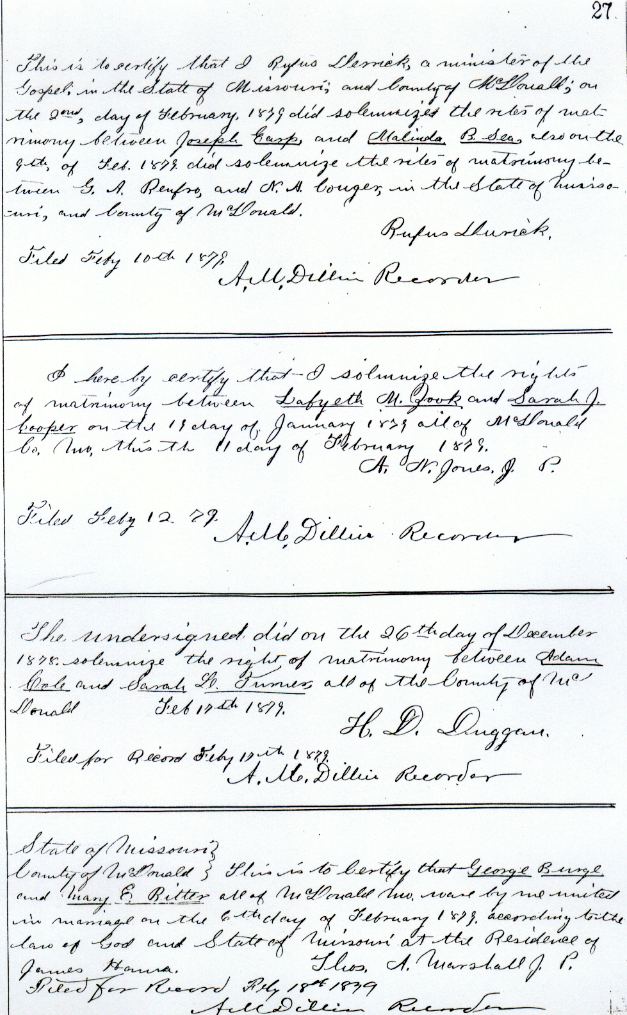 27
This is to certify that I Rufus Derrick, a minister of the
Gospel; in the State of Missouri; and County of McDonald; on
the 2nd, day of February, 1879 did solemnizes the rites of mat-
rimony between Joseph Carp, and Malinda B. Sea, also on the
9th, of Feb. 1879 did solemnize the rites of matrimony be-
tween G. A. Renfro, and N. A. Conger, in the State of Misso-
uri, and County of McDonald.
Rufus Derrick.
Filed Feby 10th 1879
A. M. Dillin Recorder
I here by certify that I solmnize the rights
of matrimony between Lafyeth M. Zook and Sarah J.
Cooper on the day of January 1879 all of McDonald
Co, Mo, this th 11 day of February 1879.
A. N. Jones, J. P.
Filed Feby 12 79.
A. M. Dillin Recorder
The undersigned did on the 26th day of December
1878. solemnize the right of matrimony between Adam
Cole and Sarah Turner, all of the County of Mc
Donald Feb 17th 1879.
H. D. Duggan.
Filed for Record Feby 17th 1879
A. M. Dillin Recorder
State of Missouri }
County of McDonald } This is to Certify that George Burge
and Mary E. Ritter all of McDonald Mo. ware by me united
in marriage on the 6th day of February 1879, according to the
law of God and State of Missouri at the Residence of
James Hanna. Thos. A. Marshall J. P.
Filed for Record Feby 18th 1879
A M Dillin Recorder